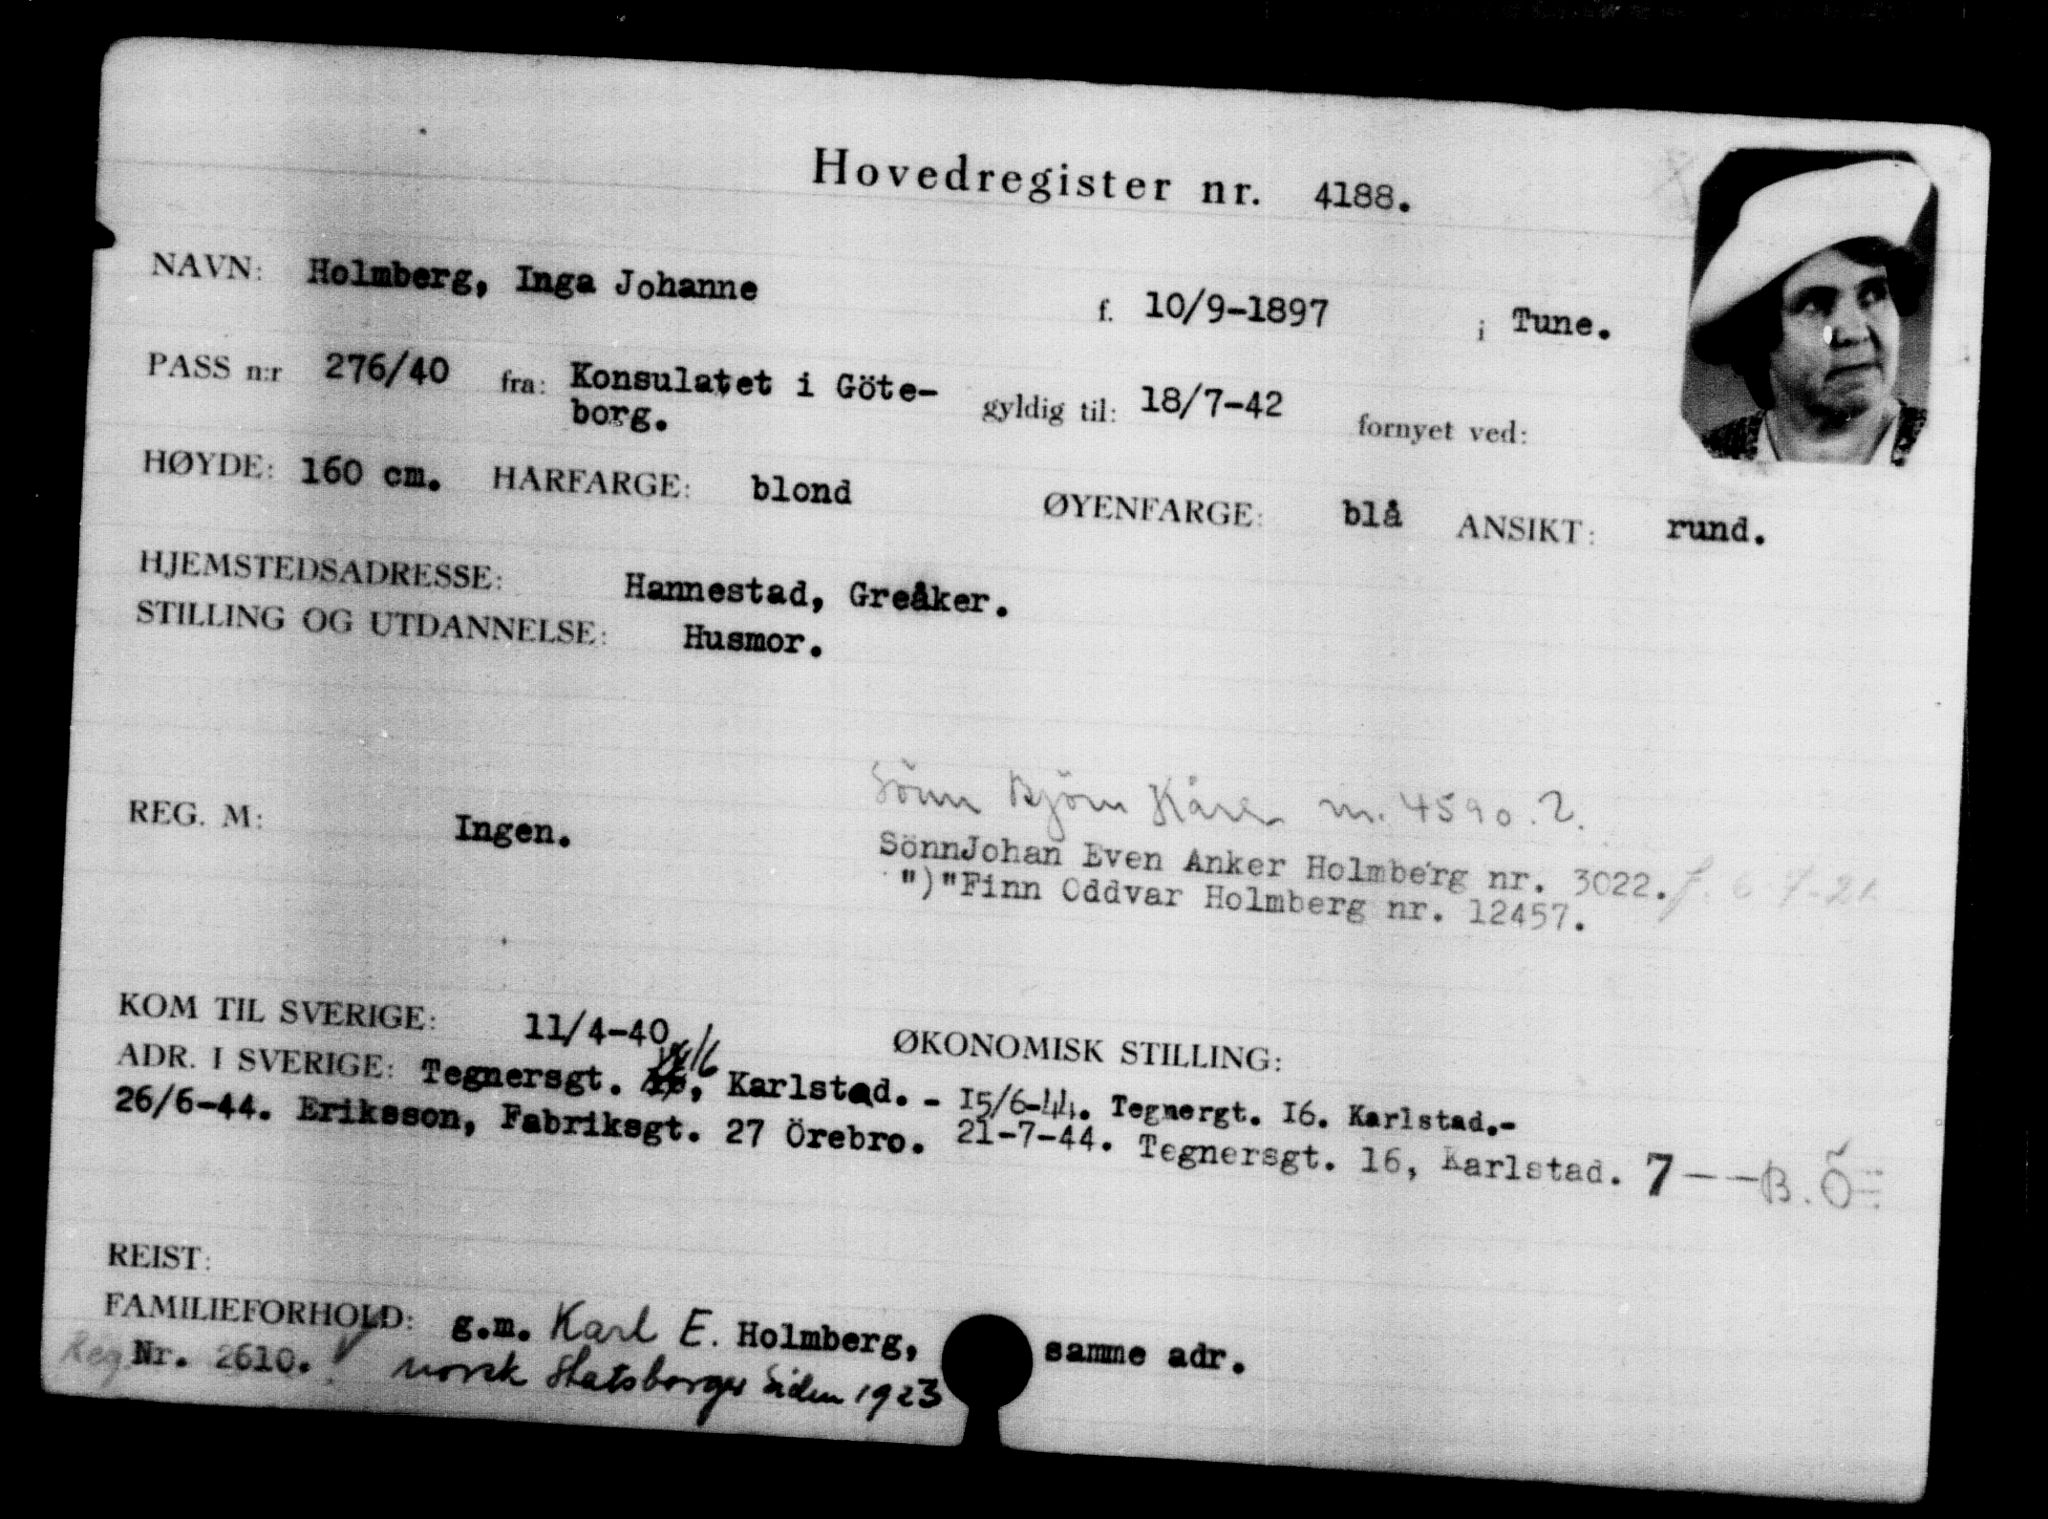 Hovedregister nr. 4188.
NAVN: Holmberg, Inga Johanne f. 10/9-1897 i Tune.
PASS n:r 276/40 fra: Konsulatet i Göte-
borg. gyldig til: 18/7-42 fornyet ved:
HØYDE: 160 cm. HÅRFARGE: blond ØYENFARGE: blå ANSIKT: rund.
HJEMSTEDSADRESSE: Hannestad, Greåker.
STILLING OG UTDANNELSE: Husmor.
Sönn Björn Kåre nr. 4590.
REG. M: Ingen.
SönnJohan Even Anker Holmberg nr. 3022. f. 6 7-21
")"Finn Oddvar Holmberg nr. 12457.
KOM TIL SVERIGE: 11/4-40 ØKONOMISK STILLING:
ADR. I SVERIGE: Tegnersgt. , Karlstad. - 15/6-44. Tegnergt. 16. Karlstad.-
26/6-44. Eriksson, Fabriksgt. 27 Örebro. 21-7-44. Tegnersgt. 16, Karlstad. 7 -- B. Ö
REIST:
FAMILIEFORHOLD: g.m. Karl E. Holmberg, samme adr.
Reg. Nr. 2610. norsk Statsborger siden 1923